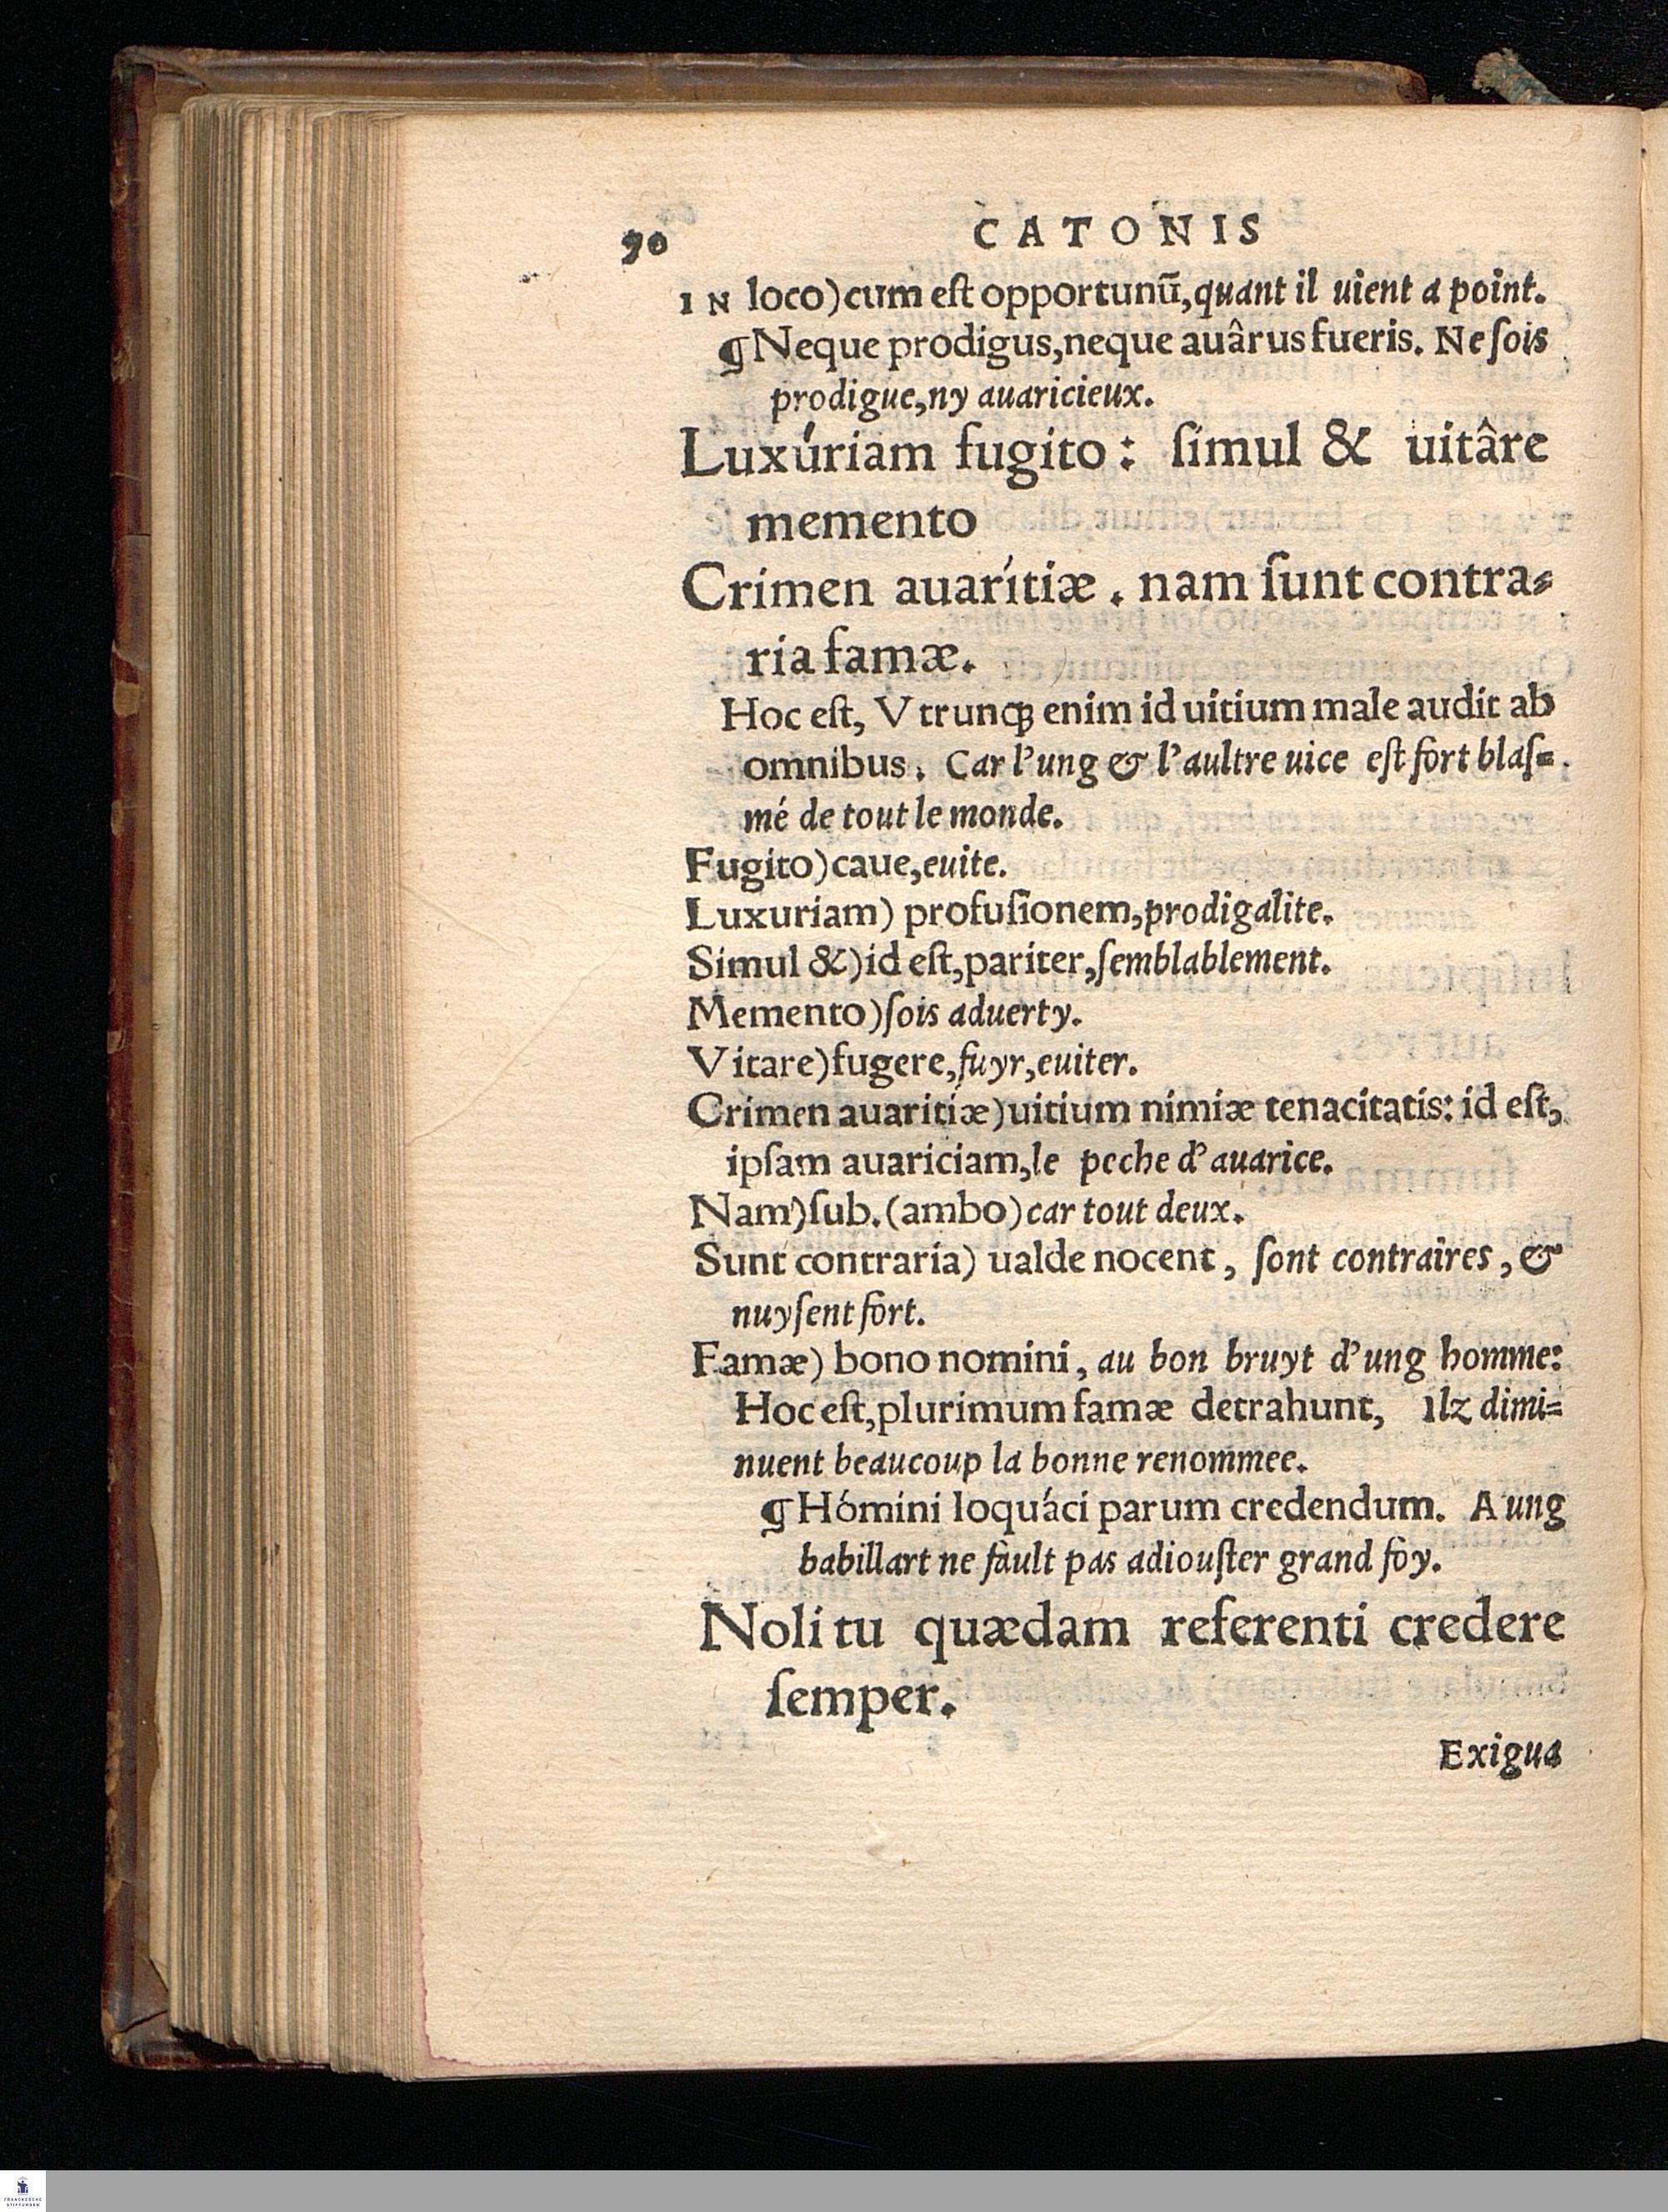 90 CATONIS
IN loco) cum eſt opportunū, quant il uient a point.
¶ Neque prodigus, neque auârus fueris. Ne ſois
prodigue, ny auaricieux.
Luxúriam fugito: ſimul & uitâre
memento
Crimen auarítiæ. nam ſunt contra⸗
ria famæ.
Hoc eſt, Vtrunqꝫ enim id uitium male audit ab
omnibus. Car l'ung & l'aultre uice eſt fort blaſ⸗
mé de tout le monde.
Fugito) caue, euite.
Luxuriam) profuſionem, prodigalite.
Simul &) id eſt, pariter, ſemblablement.
Memento) ſois aduerty.
Vitare) fugere, fuyr, euiter.
Crimen auaritiæ) uitium nimiæ tenacitatis: id eſt,
ipſam auariciam, le peche d'auarice.
Nam) ſub. (ambo) car tout deux.
Sunt contraria) ualde nocent, ſont contraires, &
nuyſent fort.
Famæ) bono nomini, au bon bruyt d'ung homme:
Hoc eſt, plurimum famæ detrahunt, Ilz dimi⸗
nuent beaucoup la bonne renommee.
¶ Hómini loquáci parum credendum. A ung
babillart ne fault pas adiouſter grand foy.
Noli tu quædam referenti credere
ſemper.
Exigua
FRANCKESCHE
STIFTUNGEN